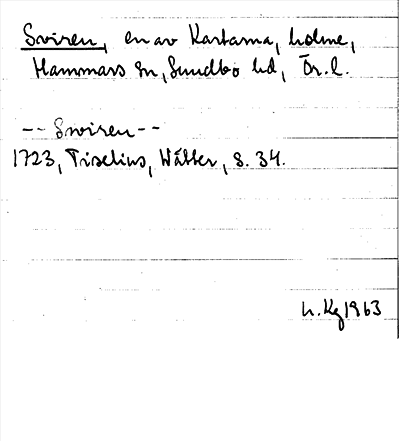 Sviren, en av Kartarna, holme,
Hammars sn, Sundbo hd, Ör. l.
-- Sviren --
1723, Tiselius, Wätter, s. 34.
h. Kg 1963